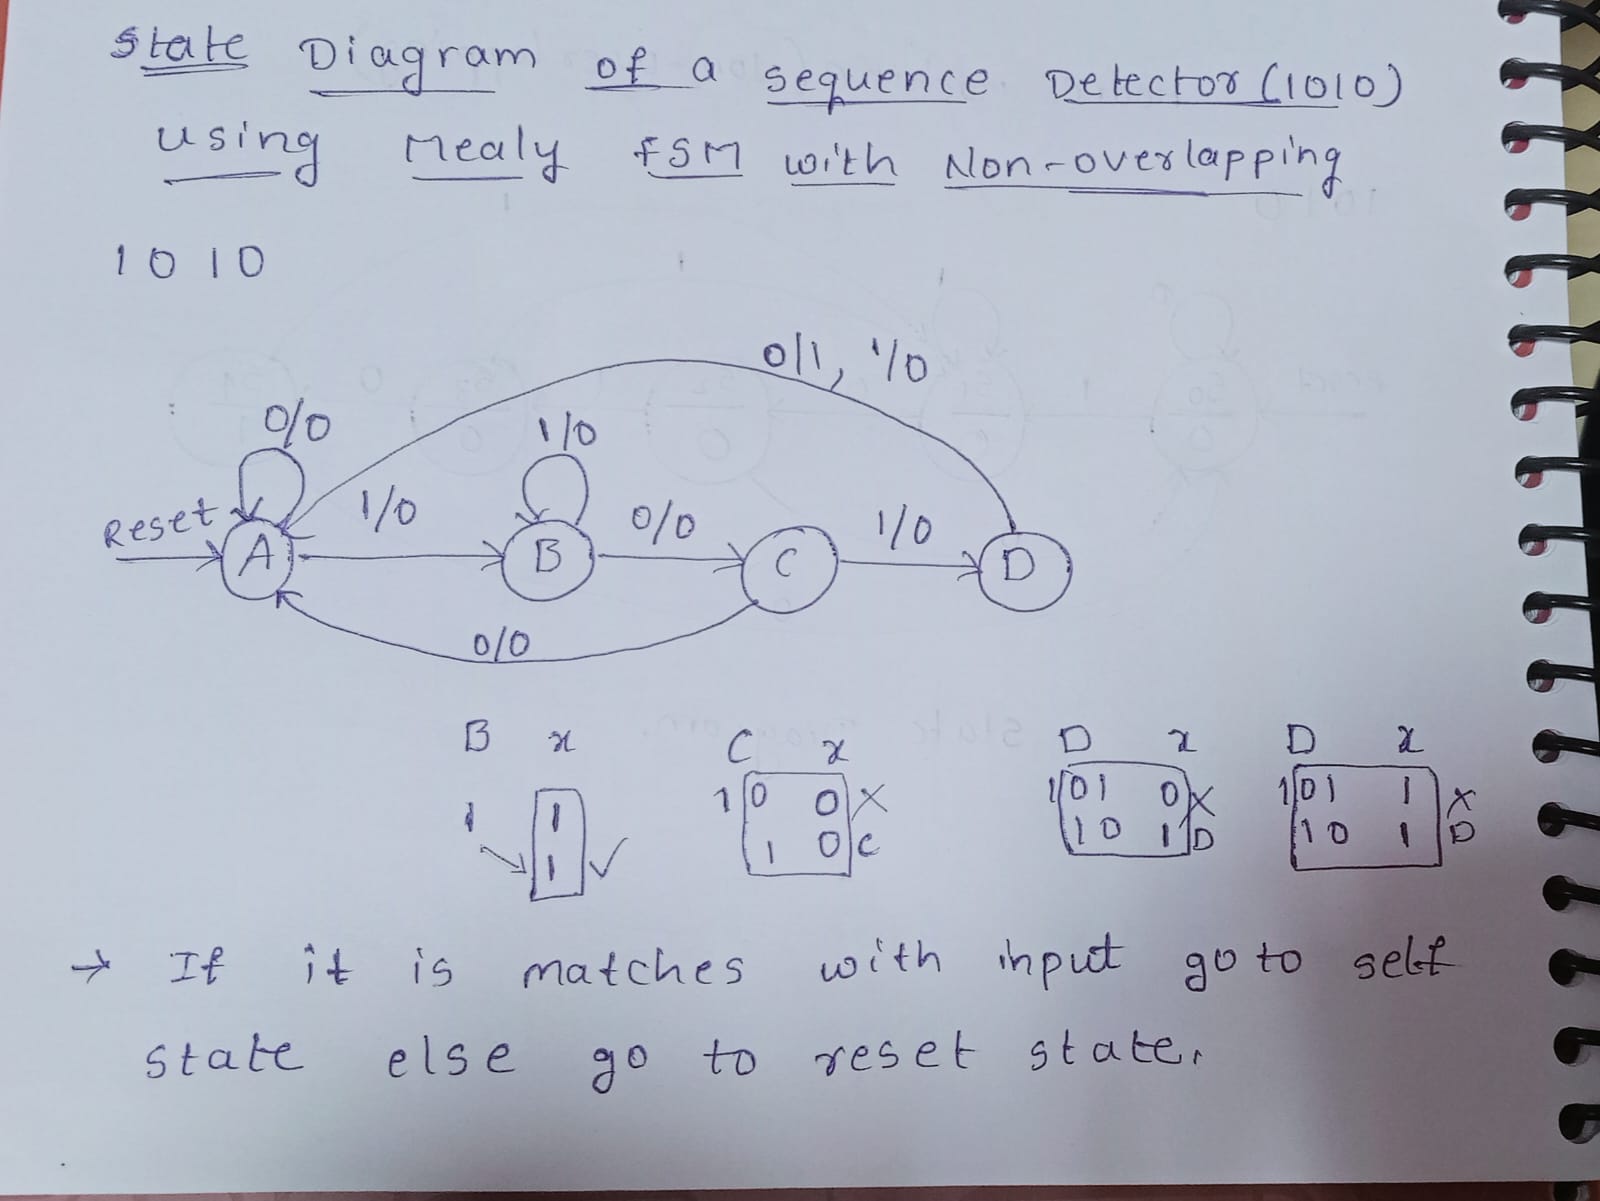 State Diagram of a sequence Detector (1010)
using Mealy FSM with Non-overlapping
1 0 1 0
0/1, 1/0
0/0
1/0
Reset
1/0
0/0
1/0
A
B
C
D
0/0
B x
C x
D x
D x
1 1
1
1 0 0 X
1 0 C
1 0 1 0 X
1 0 1 D
1 0 1 1 X
1 0 1 D
→ If it is matches with input go to self
state else go to reset state.